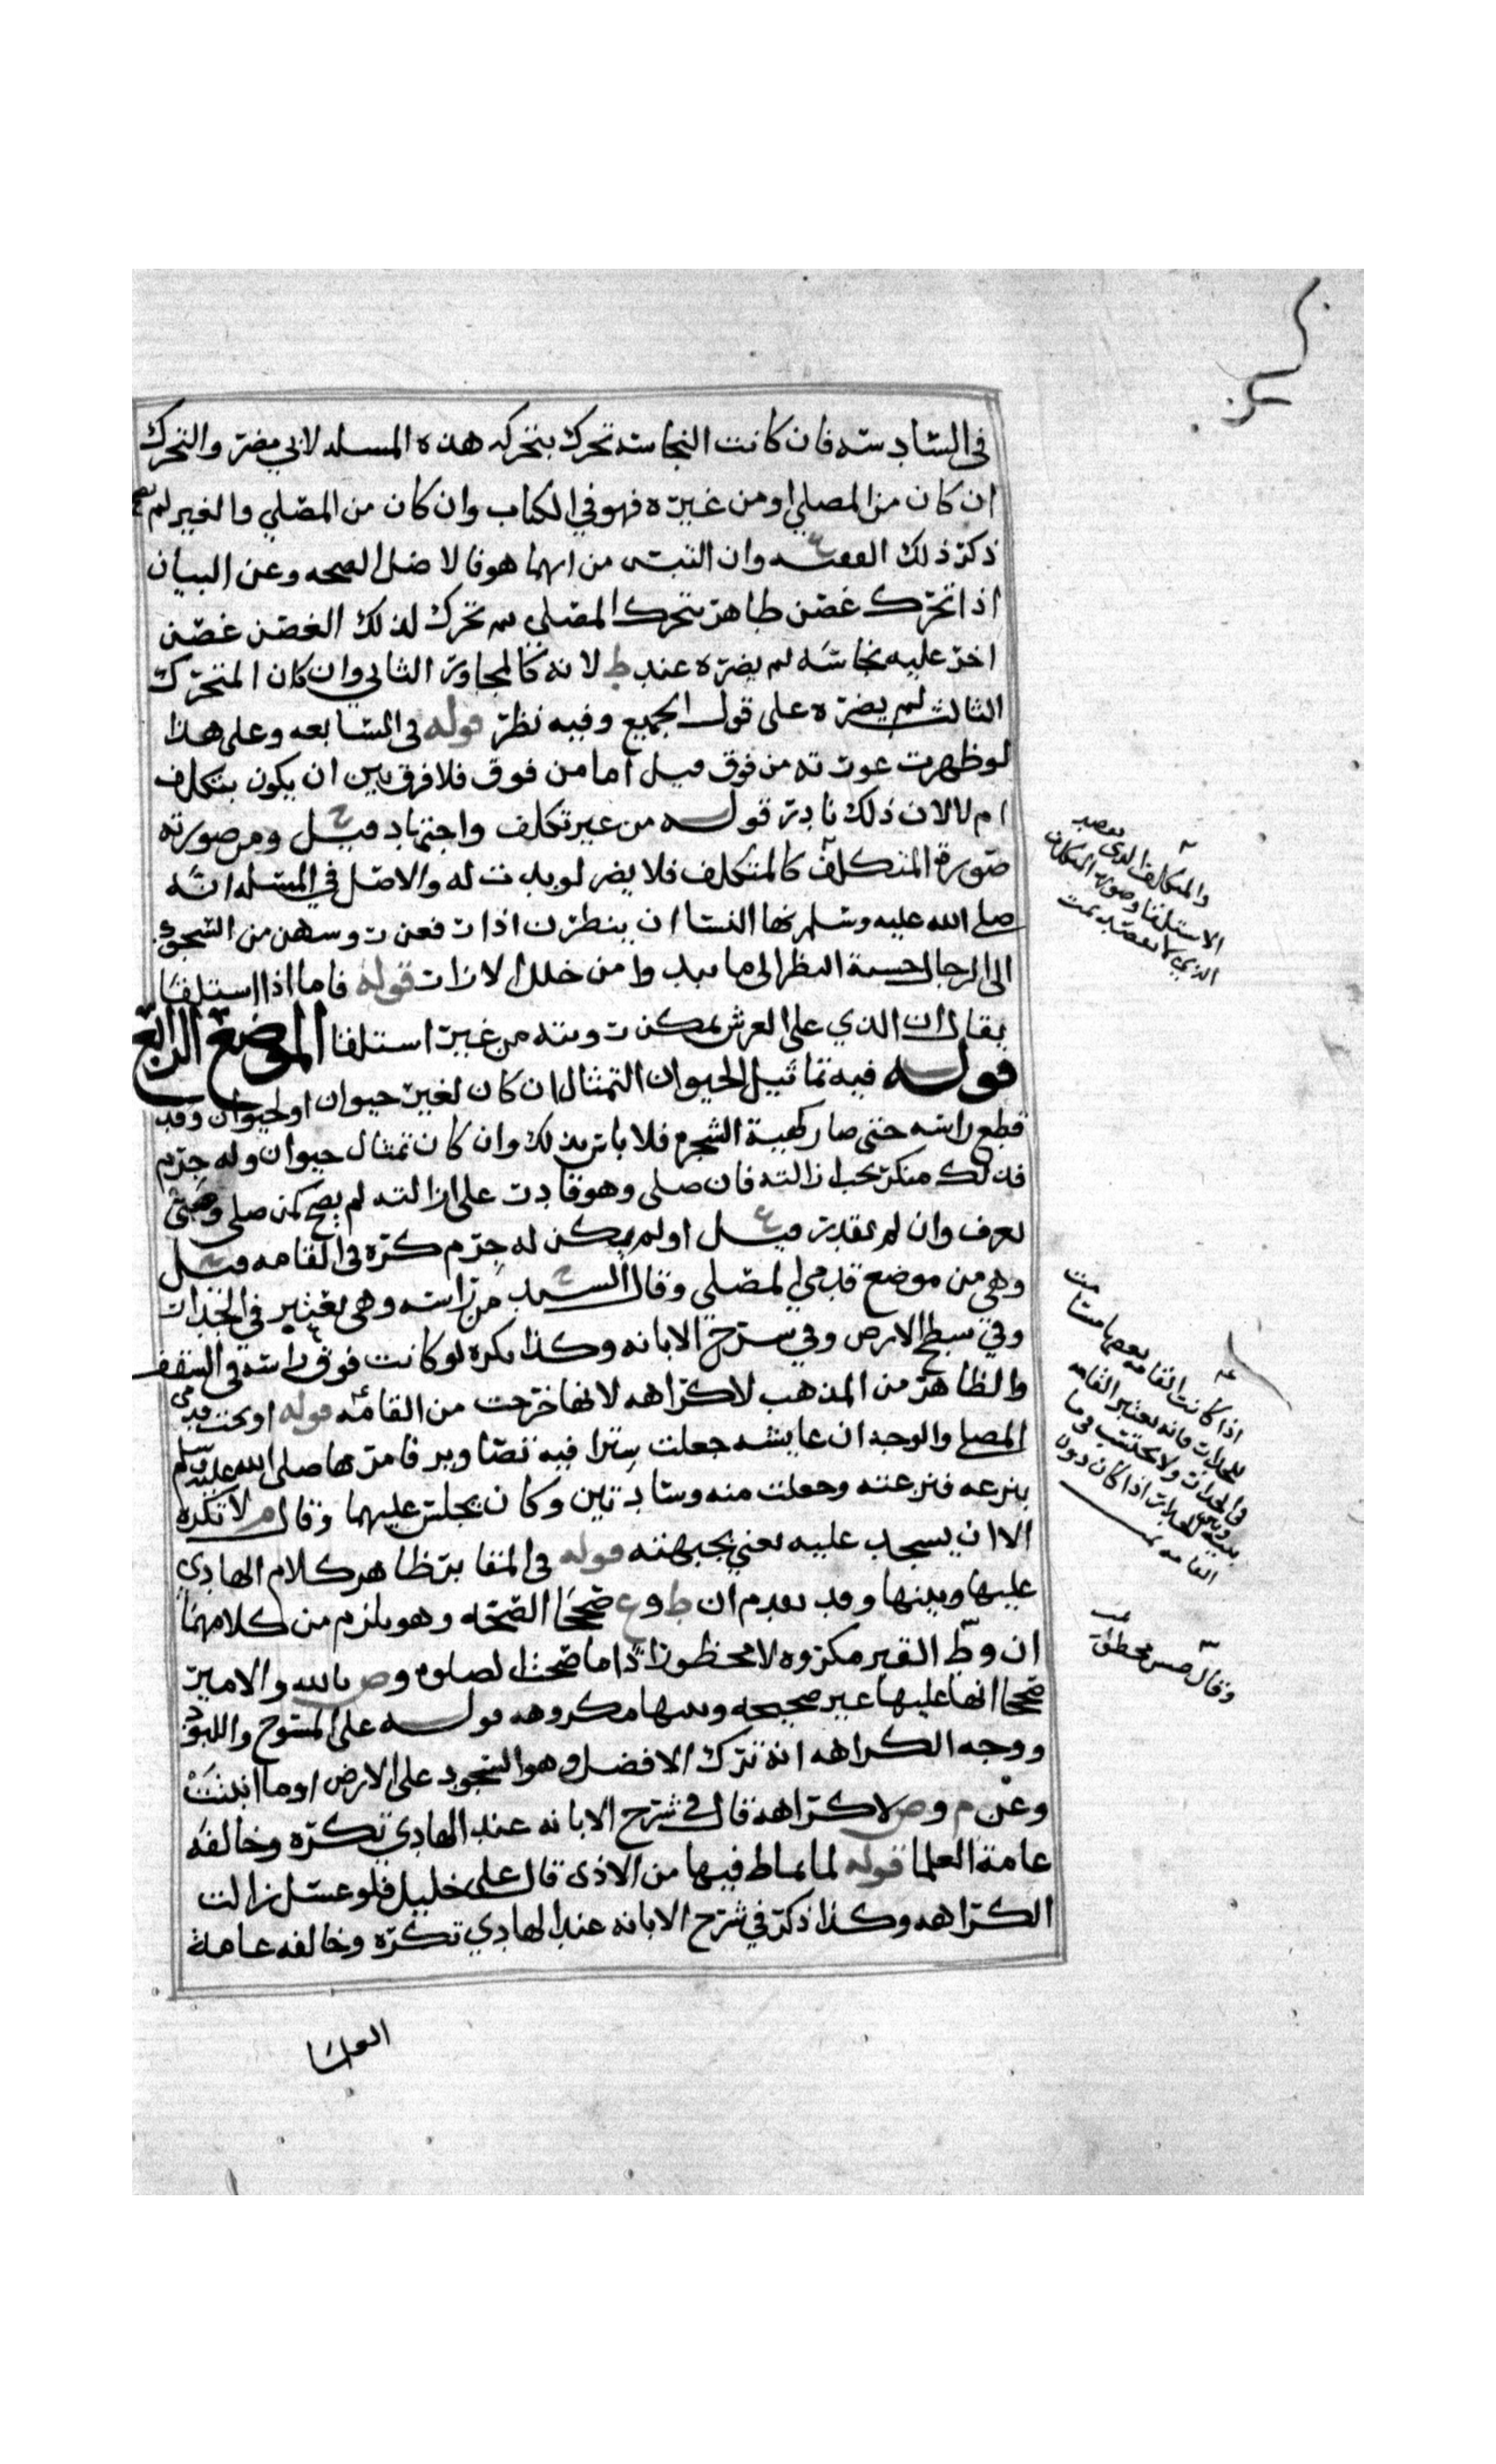 في السادسه فان كانت النجاسه تحرك بتحركه هذه المسله لابي مضر والتحرك
ان كان من المصلي او من غيره فهو في الكتاب وان كان من المصلي والغير لم يصح
ذكر ذلك الفقيه وان التبس من ايهما هو فالاصل الصحه وعن البيان
اذا تحرك غصن طاهر بتحرك المصلي ثم تحرك لذلك الغصن غصن
اخر عليه نجاسه لم يضره عند ط لانه كالمجاور الثاني وان كان المتحرك
الثالث لم يضره على قول الجميع وفيه نظر قوله في السابعه وعلى هذا
لو ظهرت عورته من فوق قيل اما من فوق فلا فرق بين ان يكون بتكلف
ام لا لان ذلك نادر قوله من غير تكلف واجتهاد قيل ح ومن صورته
صورة المتكلف كالمتكلف فلا يضر لو بدت له والاصل في المسله انه
صلى الله عليه وسلم نهى النسا ان ينظرن اذا رفعن روسهن من السجود
الى الرجال خشية النظر الى ما يبدوا من خلل الازرات قوله فاما اذا استلقا
يقال ان الذي على العرش يمكن رويته من غير استلقا الموضع الرابع
قوله فيه تماثيل الحيوان التمثال ان كان لغير حيوان او لحيوان وقد
قطع راسه حتى صار كهيئة الشجره فلا باس بذلك وان كان تمثال حيوان وله جرم
فذلك منكر يجب ازالته فان صلى وهو قادر على ازالته لم يصح كمن صلى وصبي
يغرق وان لم يقدر قيل ع او لم يكن له جرم كره في القامه قيل
وهي من موضع قدمي المصلي وقال السيد ح من راسه وهي تعتبر في الجدرات
وفي سطح الارض وفي شرح الابانه وكذا يكره لو كانت فوق راسه في السقف
والظاهر من المذهب لا كراهه لانها خرجت من القامه قوله او تحت قدمي
المصلي والوجه ان عايشه جعلت سترا فيه تصاوير فامرها صلى الله عليه وسلم
بنزعه فنزعته وجعلت منه وسادتين وكان يجلس عليهما وقال م لا تكره
الا ان يسجد عليه يعني بجبهته قوله في المقابر ظاهر كلام الهادي
عليها وبينها وقد تقدم ان ط و ع صححا الصحه وهو يلزم من كلامهما
ان وطي القبر مكروه لا محظور اذا ما صححا الصلوه و ص بالله والامير
صححا انها عليها غير صحيحه وبينها مكروهه قوله على المسوح واللبود
ووجه الكراهه انه ترك الافضل وهو السجود على الارض او ما انبتت
وعن م و ص لا كراهه قال في شرح الابانه عند الهادي تكره وخالفه
عامة العلما قوله لما يماط فيها من الاذى قال علي خليل فلو غسل زالت
الكراهه وكذا ذكر في شرح الابانه عند الهادي تكره وخالفه عامة
العلما
والمتكلف الذي يقصد
الاستلقا وصورة المتكلف
الذي لا يقصد تمت
اذا كانت القامه بعضها
الجدرات فانه يعتبر القامه
في الجدرات ولا يحتسب
اذا كان دون
القامه تمت
وقال حسن